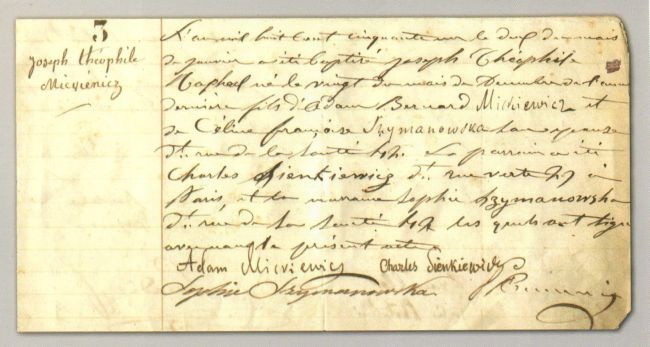 3
joseph théophile
Mickiéwicz
L'an mil huit cent cinquante un le dix du mois
de janvier a été baptisé joseph Théophile
Raphael né le vingt du mois de Décembre de l'année
dernière fils d'Adam Bernard Mickiewicz et
de Céline françoise Szymanowska son épouse
dt. rue de la Santé 42. Le parrain a été
Charles Sienkiewicz dt. rue verte à
Paris, et la marraine Sophie Szymanowska
dt. rue de la Santé 42 les quels ont signé
avec nous le présent acte
Adam Mickiewicz Charles Sienkiewicz
Sophie Szymanowska